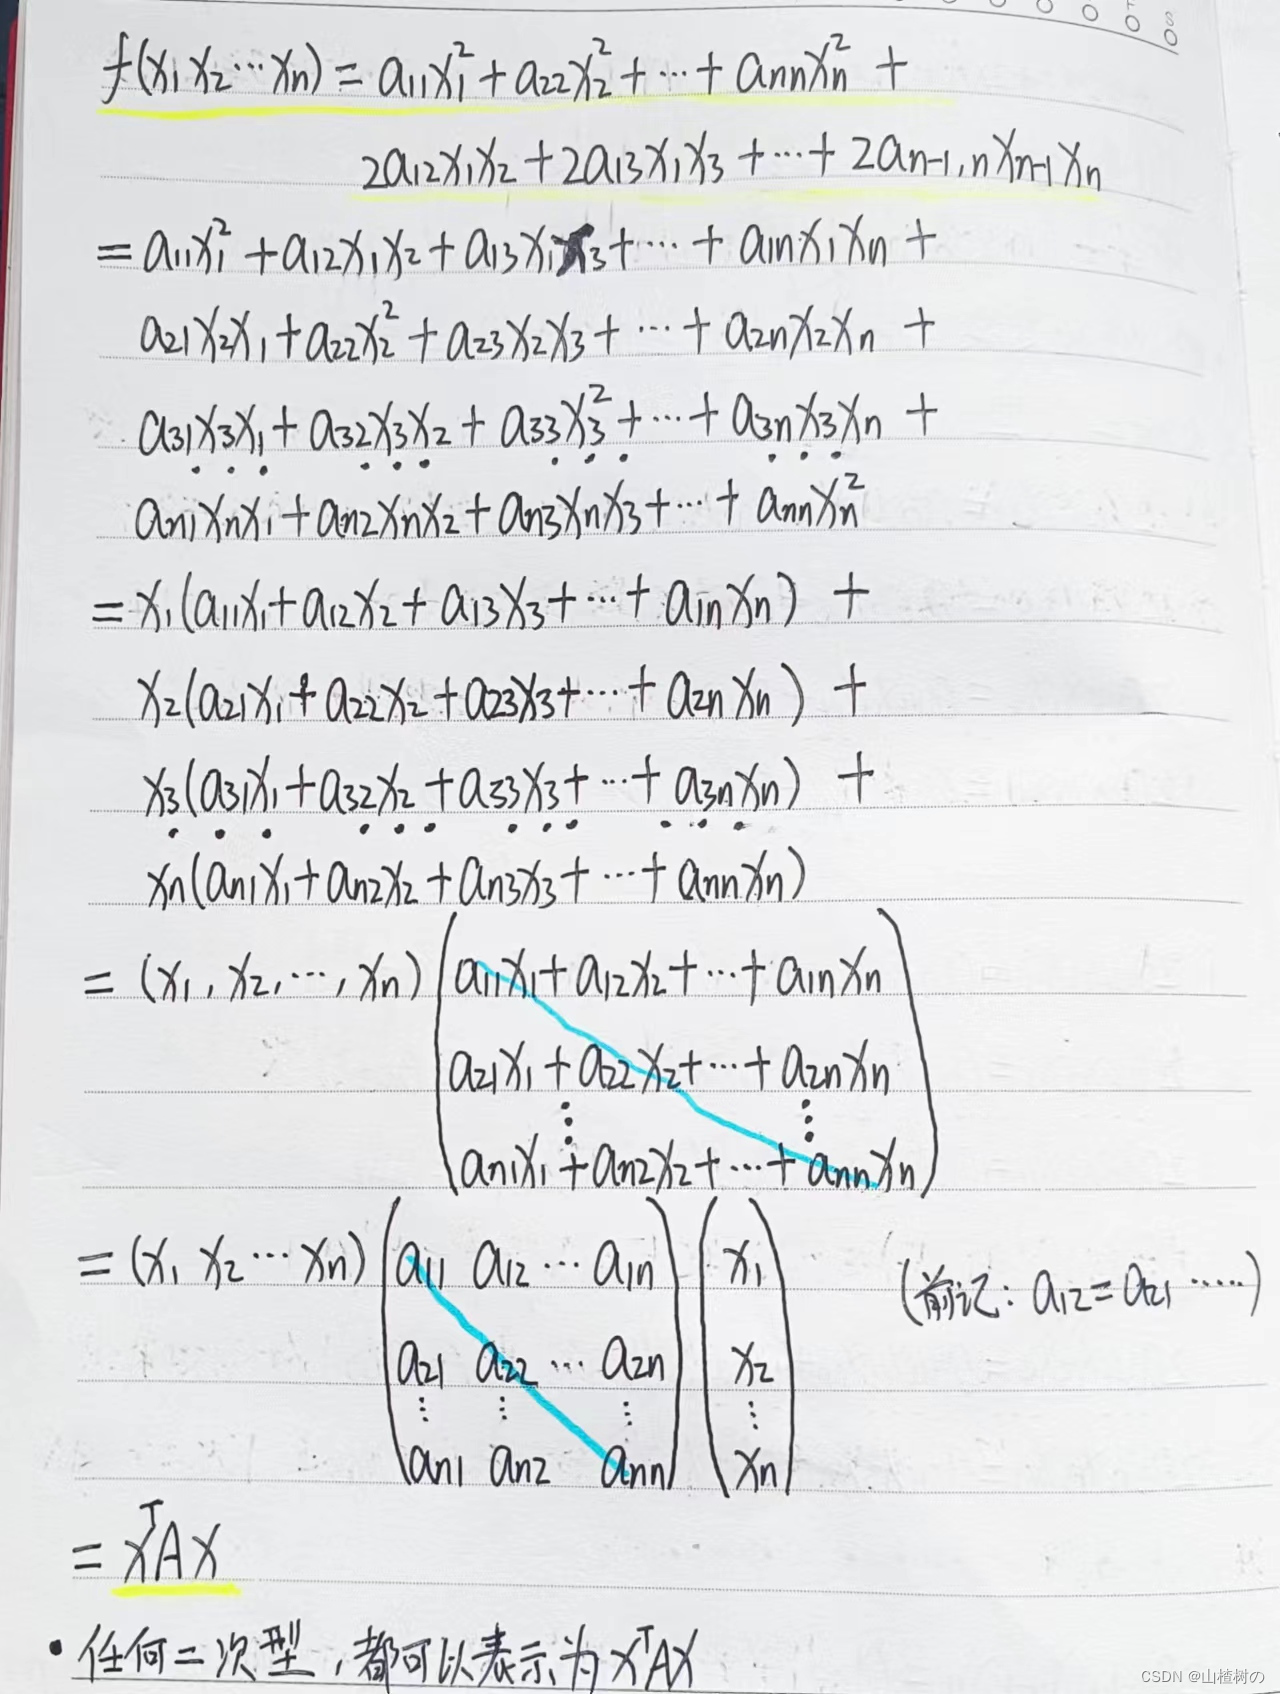 f(x₁ x₂ ⋯ xₙ) = a₁₁x₁² + a₂₂x₂² + ⋯ + aₙₙxₙ² +
2a₁₂x₁x₂ + 2a₁₃x₁x₃ + ⋯ + 2aₙ₋₁,ₙxₙ₋₁xₙ
= a₁₁x₁² + a₁₂x₁x₂ + a₁₃x₁x₃ + ⋯ + a₁ₙx₁xₙ +
a₂₁x₂x₁ + a₂₂x₂² + a₂₃x₂x₃ + ⋯ + a₂ₙx₂xₙ +
a₃₁x₃x₁ + a₃₂x₃x₂ + a₃₃x₃² + ⋯ + a₃ₙx₃xₙ +
⋯ ⋯ ⋯ ⋯
aₙ₁xₙx₁ + aₙ₂xₙx₂ + aₙ₃xₙx₃ + ⋯ + aₙₙxₙ²
= x₁(a₁₁x₁ + a₁₂x₂ + a₁₃x₃ + ⋯ + a₁ₙxₙ) +
x₂(a₂₁x₁ + a₂₂x₂ + a₂₃x₃ + ⋯ + a₂ₙxₙ) +
x₃(a₃₁x₁ + a₃₂x₂ + a₃₃x₃ + ⋯ + a₃ₙxₙ) +
⋯ ⋯ ⋯ ⋯
xₙ(aₙ₁x₁ + aₙ₂x₂ + aₙ₃x₃ + ⋯ + aₙₙxₙ)
= (x₁, x₂, ⋯, xₙ) (a₁₁x₁ + a₁₂x₂ + ⋯ + a₁ₙxₙ
a₂₁x₁ + a₂₂x₂ + ⋯ + a₂ₙxₙ
⋮ ⋮
aₙ₁x₁ + aₙ₂x₂ + ⋯ + aₙₙxₙ)
= (x₁ x₂ ⋯ xₙ) (a₁₁ a₁₂ ⋯ a₁ₙ) (x₁) (前记: a₁₂ = a₂₁ ⋯⋯)
a₂₁ a₂₂ ⋯ a₂ₙ x₂
⋮ ⋮ ⋮ ⋮
aₙ₁ aₙ₂ aₙₙ xₙ
= xᵀAx
• 任何二次型,都可以表示为xᵀAx
CSDN @山楂树の